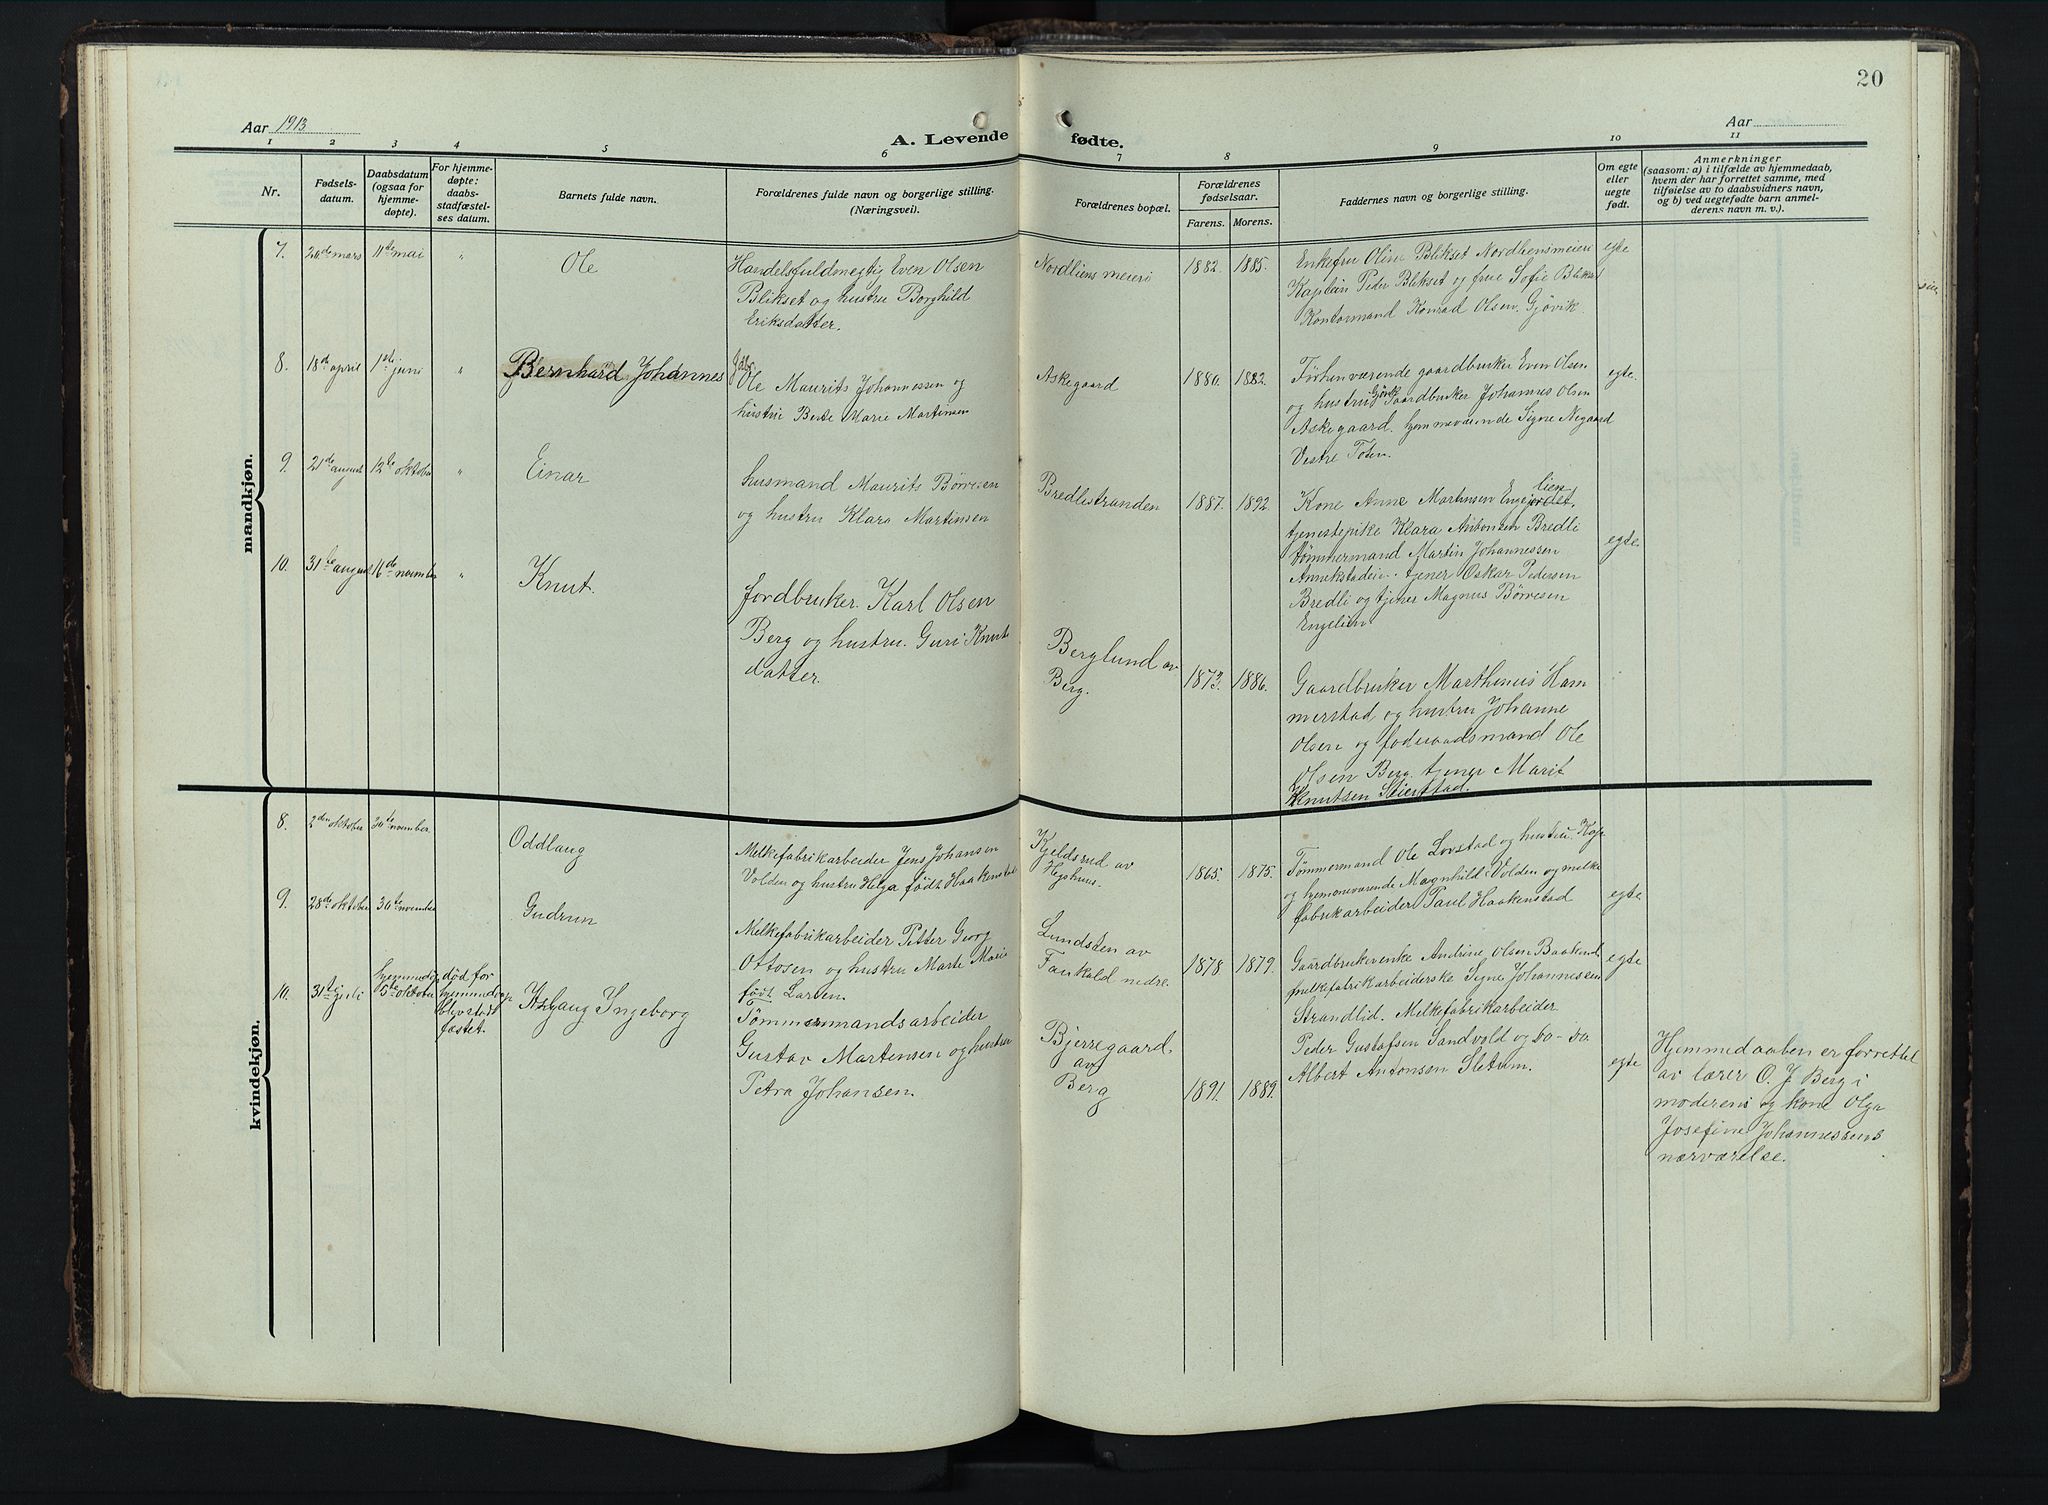 20
Aar 1913
A. Levende fødte.
Aar
1 2 3 4 5 6 7 8 9 10 11
Nr.
Fødsels-
datum.
Daabsdatum
(ogsaa for
hjemme-
døpte).
For hjemme-
døpte:
daabs-
stadfæstel-
ses datum.
Barnets fulde navn.
Forældrenes fulde navn og borgerlige stilling.
(Næringsvei).
Forældrenes bopæl.
Forældrenes
fødselsaar.
Farens. Morens.
Faddernes navn og borgerlige stilling.
Om egte
eller
uegte
født.
Anmerkninger
(saasom: a) i tilfælde av hjemmedaab,
hvem der har forrettet samme, med
tilføielse av to daabsvidners navn,
og b) ved uegtefødte barn anmel-
derens navn m. v.).
mandkjøn.
7. 20de mars 11te mai "
Ole
Handelsfuldmegtig Even Olsen
Blikset og hustru Borghild
Eriksdatter.
Nordliens meieri
1882. 1885.
Enkefru Oline Blikset Nordliensmeieri
Kaptein Peder Blikset og frue Sofie Blikset
Kontormand Konrad Olsen. Gjøvik.
egte
8. 18de april 1ste juni "
Bernhard Johannes
Ole Maurits Johannessen og
hustru Berte Marie Martinsen
Askegaard
1880. 1882.
Førhenværende gaardbruker Even Olsen
og hustru Gaardbruker Johannes Olsen
Askegaard. hjemmeværende Signe Negaard
Vestre Toten.
egte.
9. 21de august 12te oktober "
Einar
husmand Maurits Børresen
og hustru Klara Martinsen
Bredlistranden
1887. 1892.
lien
Kone Anne Martinsen Engejordet,
tjenestepike Klara Antonsen Bredli
Tømmermand Martin Johannessen
Annekstadeie. tjener Oskar Pedersen
Bredli og tjener Magnus Børresen
Engelien
egte.
10. 31te august 16de november "
Knut.
Jordbruker Karl Olsen
Berg og hustru. Guri Knuts
datter.
Berglund av
Berg.
1873. 1886.
Gaardbruker Marthinus Ham
merstad og hustru Johanne
Olsen og føderaadsmand Ole
Olsen Berg. tjener Marit
Knutsen Seierstad.
kvindekjøn.
8. 2den oktober 30te november.
Oddlaug
Melkefabrikarbeider Jens Johansen
Volden og hustru Helga født Haakenstad
Kjeldsrud av
Hegshuus.
1865. 1875.
Tømmermand Ole Lovstad og hustru. Kap
og hjemmeværende Magnhild Volden og melke
fabrikarbeider Paul Haakenstad
egte
9. 28de oktober 30te november
Gudrun
Melkefabrikarbeider Petter Georg
Ottosen og hustru Marte Marie
født Larsen.
Lundsten av
Faukald nedre.
1878. 1879.
Gaardbrukerenke Andrine Olsen Baakend
melkefabrikarbeiderske Signe Johannessen
Strandlid. Melkefabrikarbeider
Peder Gustafsen Sandvold og do-do
Albert Antonsen Sletum.
egte
10. 31te juli
hjemmedøp
5te oktober
død for
hjemmedaap
blev stad
fæstet.
Aslaug Ingeborg
Tømmermandsarbeider
Gustav Martensen og hustru
Petra Johansen.
Bjerregaard.
av
Berg
1891. 1889.
egte
Hjemmedaaben er forrettet
av lærer O. J Berg i
moderens og kone Olga
Josefine Johannessens
nærværelse.